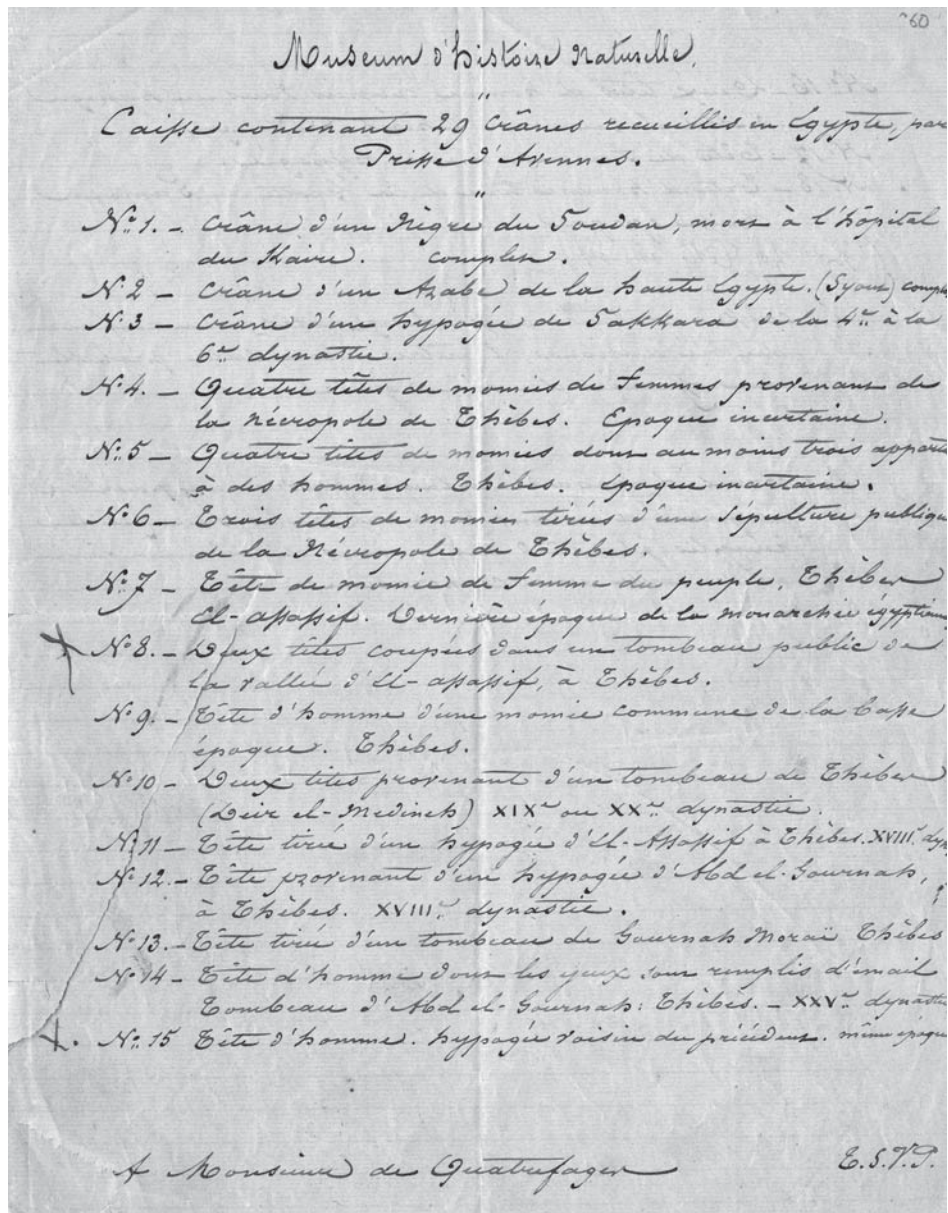 60
Museum d'histoire Naturelle.
"
Caisse contenant 29 Crânes recueillis en Egypte, par
Prisse d'Avennes.
"
N° 1. - Crâne d'un Nègre du Soudan, mort à l'hôpital
du Kaire. complet.
N° 2 - Crâne d'un Arabe de la haute Egypte. (Syout) compl
N° 3 - Crâne d'un hypogée de Sakkara de la 4e à la
6e dynastie.
N° 4. - Quatre têtes de momies de femmes provenant de
la nécropole de Thèbes. Epoque incertaine.
N° 5 - Quatre têtes de momies dont au moins trois appart
à des hommes. Thèbes. Epoque incertaine.
N° 6 - Trois têtes de momies tirées d'une sépulture publique
de la Nécropole de Thèbes.
N° 7 - Tête de momie de femme du peuple, Thèbes
El-assassif. Dernière époque de la monarchie égyptienne
X N° 8. - Deux têtes coupées dans un tombeau public de
la vallée d'El-assassif, à Thèbes.
N° 9. - Tête d'homme d'une momie commune de la basse
époque. Thèbes.
N° 10 - Deux têtes provenant d'un tombeau de Thèbes
(Deir el-Medineh) XIXe ou XXe dynastie.
N° 11 - Tête tirée d'un hypogée d'El-Assassif à Thèbes. XVIIIe dyn
N° 12. - Tête provenant d'une hypogée d'Abd el-Gournah,
à Thèbes. XVIIIe dynastie.
N° 13. - Tête tirée d'un tombeau de Gournah Moraï Thèbes
N° 14 - Tête d'homme dont les yeux sont remplis d'émail
Tombeau d'Abd el-Gournah: Thèbes. - XXVe dynastie
X. N° 15 Tête d'homme. hypogée voisin du précédent. même époque
A Monsieur de Quatrefages T.S.V.P.